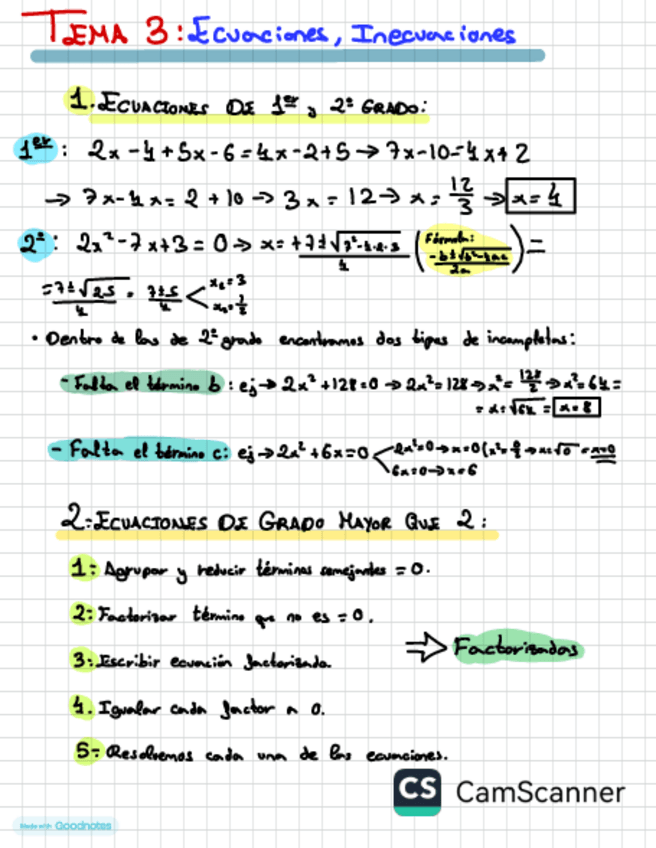 TEMA 3: Ecuaciones, Inecuaciones
1. ECUACIONES DE 1er y 2º GRADO:
1er: 2x - 4 + 5x - 6 = 4x - 2 + 5 → 7x - 10 = 4x + 2
→ 7x - 4x = 2 + 10 → 3x = 12 → x = 12/3 → x = 4
2º: 2x² - 7x + 3 = 0 → x = +7±√7²-4·2·3 / 4 (Fórmula: -b±√b²-4ac / 2a) =
= 7±√25 / 4 = 7±5 / 4 < x₁ = 3
x₂ = 1/2
• Dentro de las de 2º grado encontramos dos tipos de incompletas:
- Falta el término b: ej → 2x² + 128 = 0 → 2x² = 128 → x² = 128/2 → x² = 64 =
= x = √64 = x = 8
- Falta el término c: ej → 2x² + 6x = 0 < 2x² = 0 → x = 0 (x² = 0/2 → x = √0 = x = 0
6x = 0 → x = 6
2. ECUACIONES DE GRADO MAYOR QUE 2:
1: Agrupar y reducir términos semejantes = 0.
2: Factorizar término que no es = 0.
⇒ Factorizadas
3: Escribir ecuación factorizada.
4. Igualar cada factor a 0.
5- Resolvemos cada una de las ecuaciones.
CS CamScanner
Made with Goodnotes